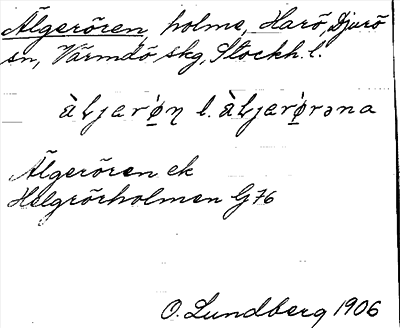 Älgerören, holme, Harö, Djurö
sn, Värmdö skg, Stockh. l.
l.
Älgerören ek
Helgrörholmen G76
O. Lundberg 1906